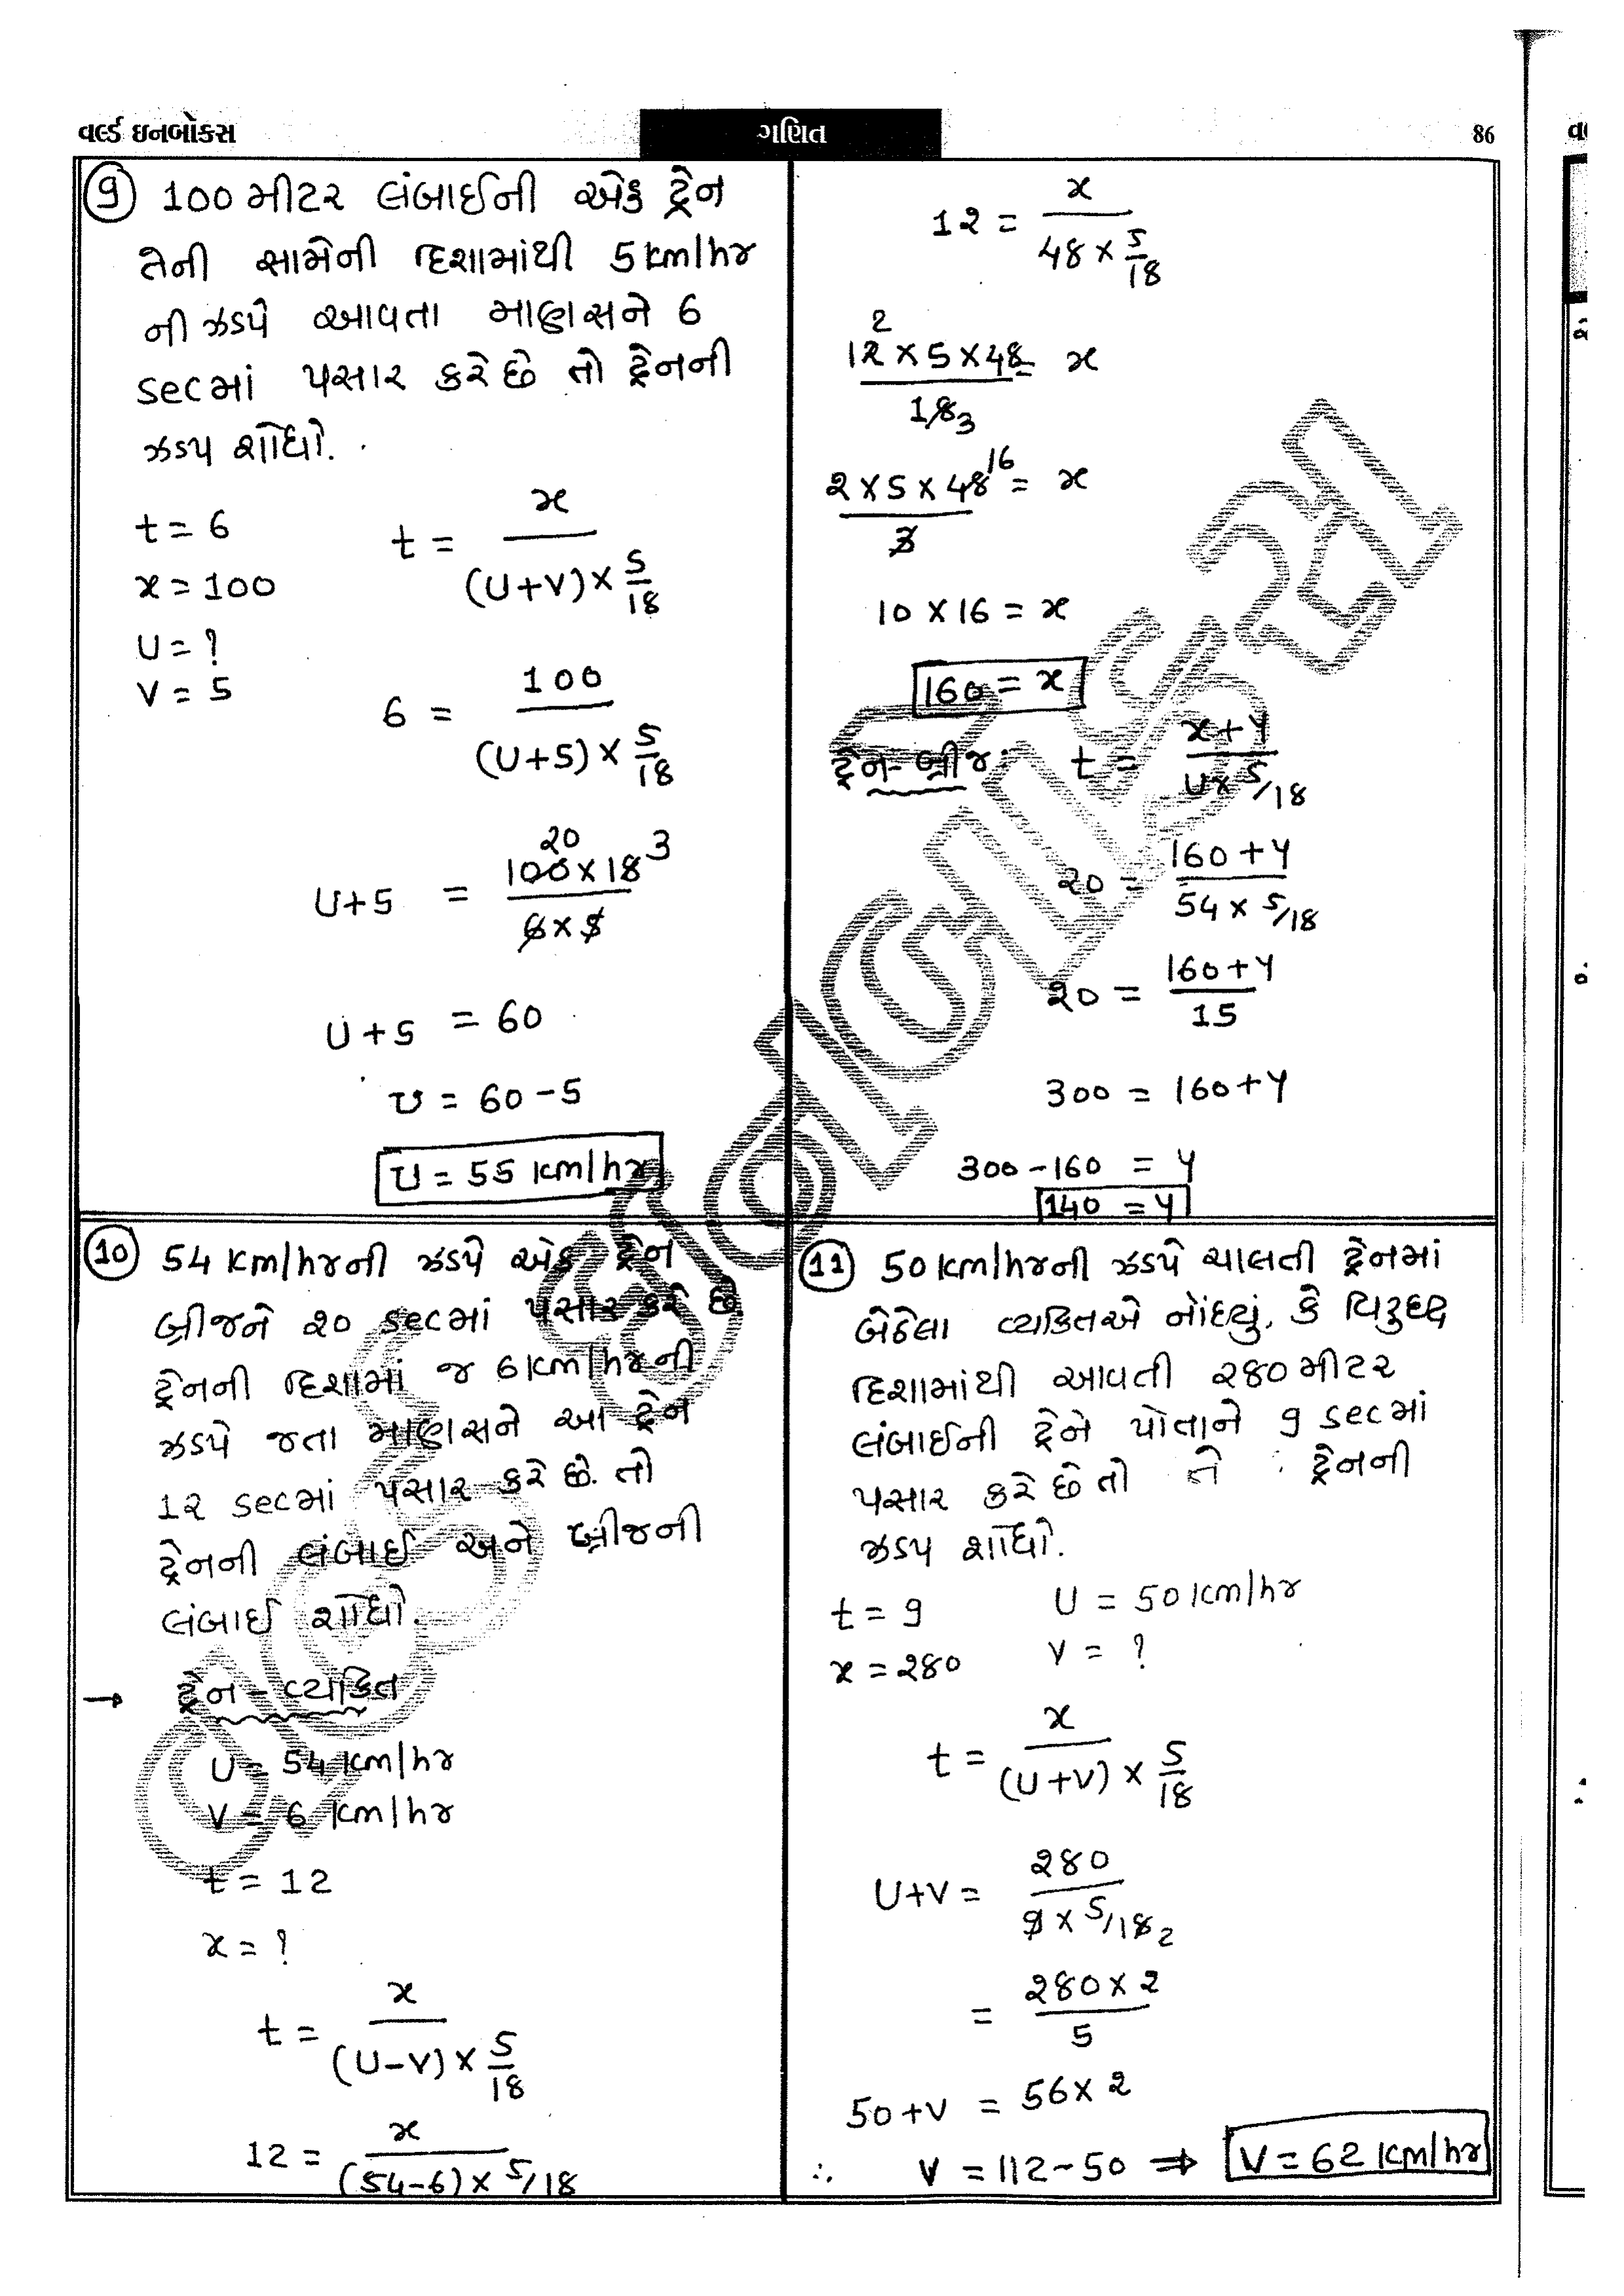 વર્લ્ડ ઇનબોક્સ
ગણિત
86
9 100 મીટર લંબાઈની એક ટ્રેન
તેની સામેની દિશામાંથી 5 km/hr
ની ઝડપે આવતા માણસને 6
sec માં પસાર કરે છે તો ટ્રેનની
ઝડપ શોધો.
t = 6
x = 100
U = ?
V = 5
t = x / (U+V) × 5/18
6 = 100 / (U+5) × 5/18
U+5 = 100 × 18 / 6 × 5
20 3
U+5 = 60
U = 60 - 5
U = 55 km/hr
10 54 km/hr ની ઝડપે એક ટ્રેન
બ્રીજને 20 sec માં પસાર કરે છે.
ટ્રેનની દિશામાં જ 6 km/hr ની
ઝડપે જતા માણસને આ ટ્રેન
12 sec માં પસાર કરે છે. તો
ટ્રેનની લંબાઈ અને બ્રીજની
લંબાઈ શોધો.
→ ટ્રેન - વ્યકિત
U = 54 km/hr
V = 6 km/hr
t = 12
x = ?
t = x / (U-V) × 5/18
12 = x / (54-6) × 5/18
12 = x / 48 × 5/18
2
12 × 5 × 48 / 18 = x
3
2 × 5 × 48 / 3 = x
16
10 × 16 = x
160 = x
ટ્રેન - બ્રીજ : t = x+y / U × 5/18
20 = 160+y / 54 × 5/18
20 = 160+y / 15
300 = 160+y
300 - 160 = y
140 = y
11 50 km/hr ની ઝડપે ચાલતી ટ્રેનમાં
બેઠેલા વ્યકિતએ નોંધ્યું, કે વિરુધ્ધ
દિશામાંથી આવતી 280 મીટર
લંબાઈની ટ્રેને પોતાને 9 sec માં
પસાર કરે છે તો તે ટ્રેનની
ઝડપ શોધો.
t = 9
U = 50 km/hr
x = 280
V = ?
t = x / (U+V) × 5/18
U+V = 280 / 9 × 5/18
2
= 280 × 2 / 5
50+V = 56 × 2
∴ V = 112 - 50 ⇒ V = 62 km/hr